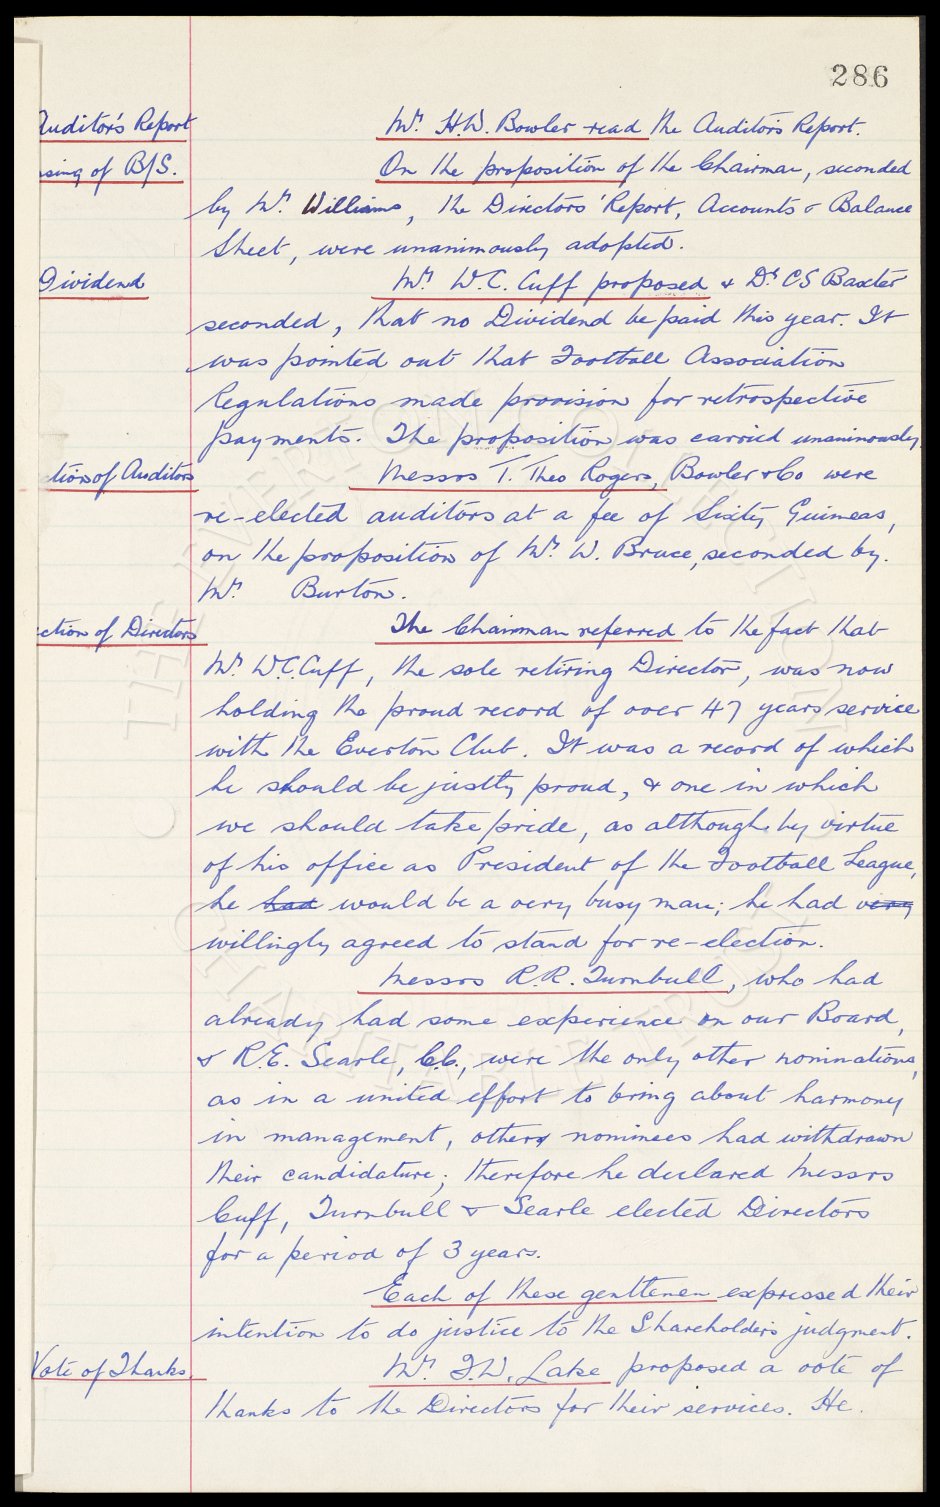 286
Auditor's Report
Mr. H.W. Bowler read the Auditors Report.
sing of B/S.
On the proposition of the Chairman, seconded
by Mr. Williams, the Directors' Report, Accounts & Balance
Sheet, were unanimously adopted.
Dividend
Mr. W.C. Cuff proposed & Dr. C S Baxter
seconded, that no Dividend be paid this year. It
was pointed out that Football Association
Regulations made provision for retrospective
payments. The proposition was carried unanimously.
ction of Auditors
Messrs T. Theo Rogers, Bowler & Co were
re-elected auditors at a fee of Sixty Guineas,
on the proposition of Mr. W. Bruce, seconded by.
Mr. Burton.
ction of Directors
The Chairman referred to the fact that
Mr. W.C. Cuff, the sole retiring Director, was now
holding the proud record of over 47 years service
with the Everton Club. It was a record of which
he should be justly proud, & one in which
we should take pride, as although, by virtue
of his office as President of the Football League,
he had would be a very busy man; he had very
willingly agreed to stand for re-election.
Messrs R.R. Turnbull, who had
already had some experience on our Board,
& R.E. Searle, C.C., were the only other nominations,
as in a united effort to bring about harmony
in management, other nominees had withdrawn
their candidature; therefore he declared Messrs
Cuff, Turnbull & Searle elected Directors
for a period of 3 years.
Each of these gentlemen expressed their
intention to do justice to the Shareholders judgment.
Vote of Thanks.
Mr. F.W. Lake proposed a vote of
thanks to the Directors for their services. He.
THE EVERTON COLLECTION
CHARITABLE TRUST